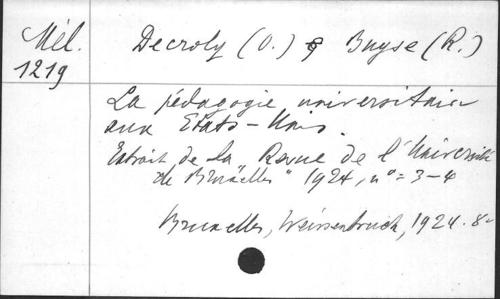 Mél.
1219
Decroly (O.) & Buyse (R.)
La pédagogie universitaire
aux Etats-Unis.
Extrait de la „Revue de l'Université
de Bruxelles" 1924, n° = 3-4
Bruxelles, Weissenbruch, 1924. 8-